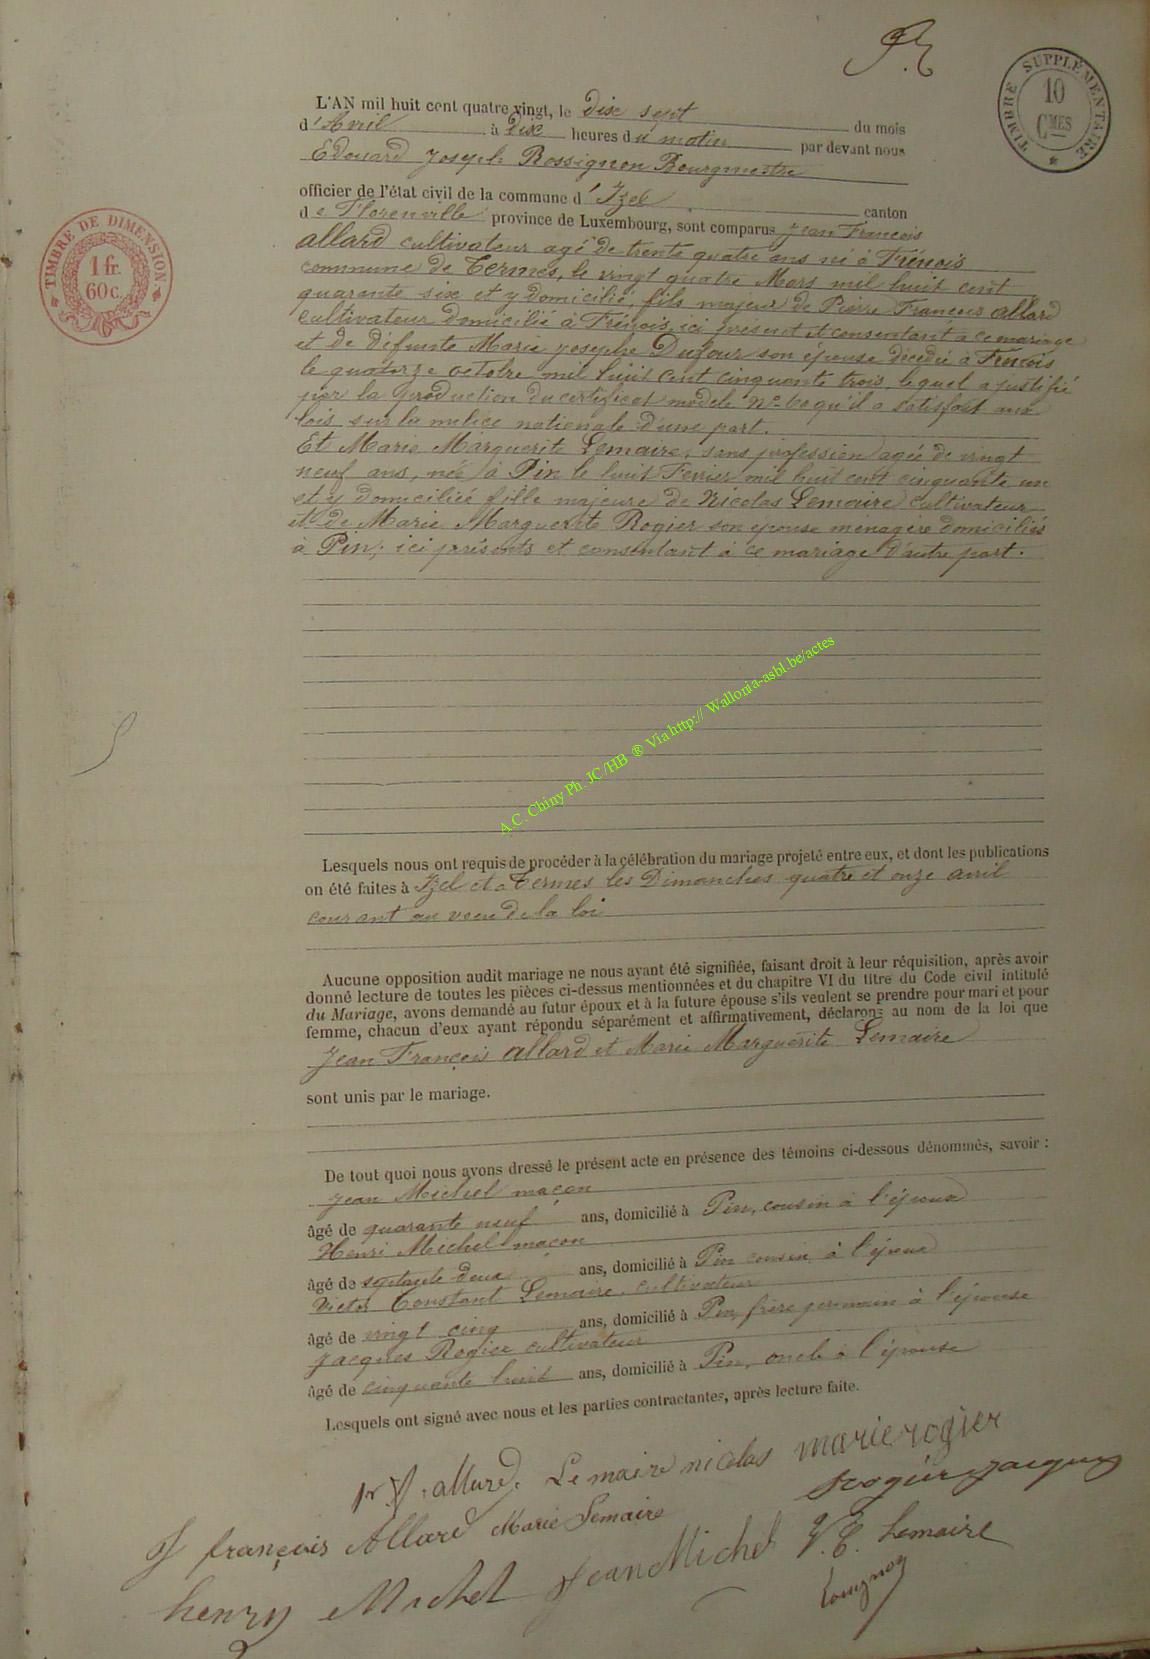 TIMBRE SUPPLÉMENTAIRE
10
CMES
L'AN mil huit cent quatre vingt, le dix sept du mois
d'Avril à dix heures du matin par devant nous
Edouard Joseph Rossignon Bourgmestre
officier de l'état civil de la commune d'Izel canton
de Florenville province de Luxembourg, sont comparus Jean François
allard cultivateur agé de trente quatre ans né à Frénois
commune de Termes, le vingt quatre Mars mil huit cent
quarante six et y domicilié, fils majeur de Pierre François allard
cultivateur domicilié à Frénois, ici présent et consentant a ce mariage
et de défunte Marie josephe Dufour son épouse décédée à Frénois
le quatorze octobre mil huit cent cinquante trois, lequel a justifié
par la production du certificat modele No qu'il a satisfait aux
lois sur la milice nationale d'une part.
Et Marie Marguerite Lemaire, sans profession agée de vingt
neuf ans, née à Pin le huit Fevrier mil huit cent cinquante un
et y domiciliée fille majeure de Nicolas Lemaire cultivateur
et de Marie Marguerite Rogier son épouse ménagère domiciliés
à Pin, ici présents et consentant à ce mariage d'autre part.
TIMBRE DE DIMENSION
1 fr.
60 c.
A.C. Chiny Ph. JC/HB ® Via http:// Wallonia-asbl.be/actes
Lesquels nous ont requis de procéder à la célébration du mariage projeté entre eux, et dont les publications
on été faites à Izel et a Termes les Dimanches quatre et onze avril
courant au voeu de la loi
Aucune opposition audit mariage ne nous ayant été signifiée, faisant droit à leur réquisition, après avoir
donné lecture de toutes les pièces ci-dessus mentionnées et du chapitre VI du titre du Code civil intitulé
du Mariage, avons demandé au futur époux et à la future épouse s'ils veulent se prendre pour mari et pour
femme, chacun d'eux ayant répondu séparément et affirmativement, déclarons au nom de la loi que
Jean François allard et Marie Marguerite Lemaire
sont unis par le mariage.
De tout quoi nous avons dressé le présent acte en présence des témoins ci-dessous dénommés, savoir :
Jean Michel maçon
âgé de quarante neuf ans, domicilié à Pin, cousin à l'époux
Henri Michel maçon
âgé de septante deux ans, domicilié à Pin cousin à l'époux
Victor Constant Lemaire, cultivateur
âgé de vingt cinq ans, domicilié à Pin, frère germain à l'épouse
Jacques Rogier cultivateur
âgé de cinquante huit ans, domicilié à Pin, oncle à l'épouse
Lesquels ont signé avec nous et les parties contractantes, après lecture faite.
allard. Lemaire nicolas marie rogier
Rogier jacques
J françois Allard Marie Lemaire
henry Michel Jean Michel V. C. Lemaire